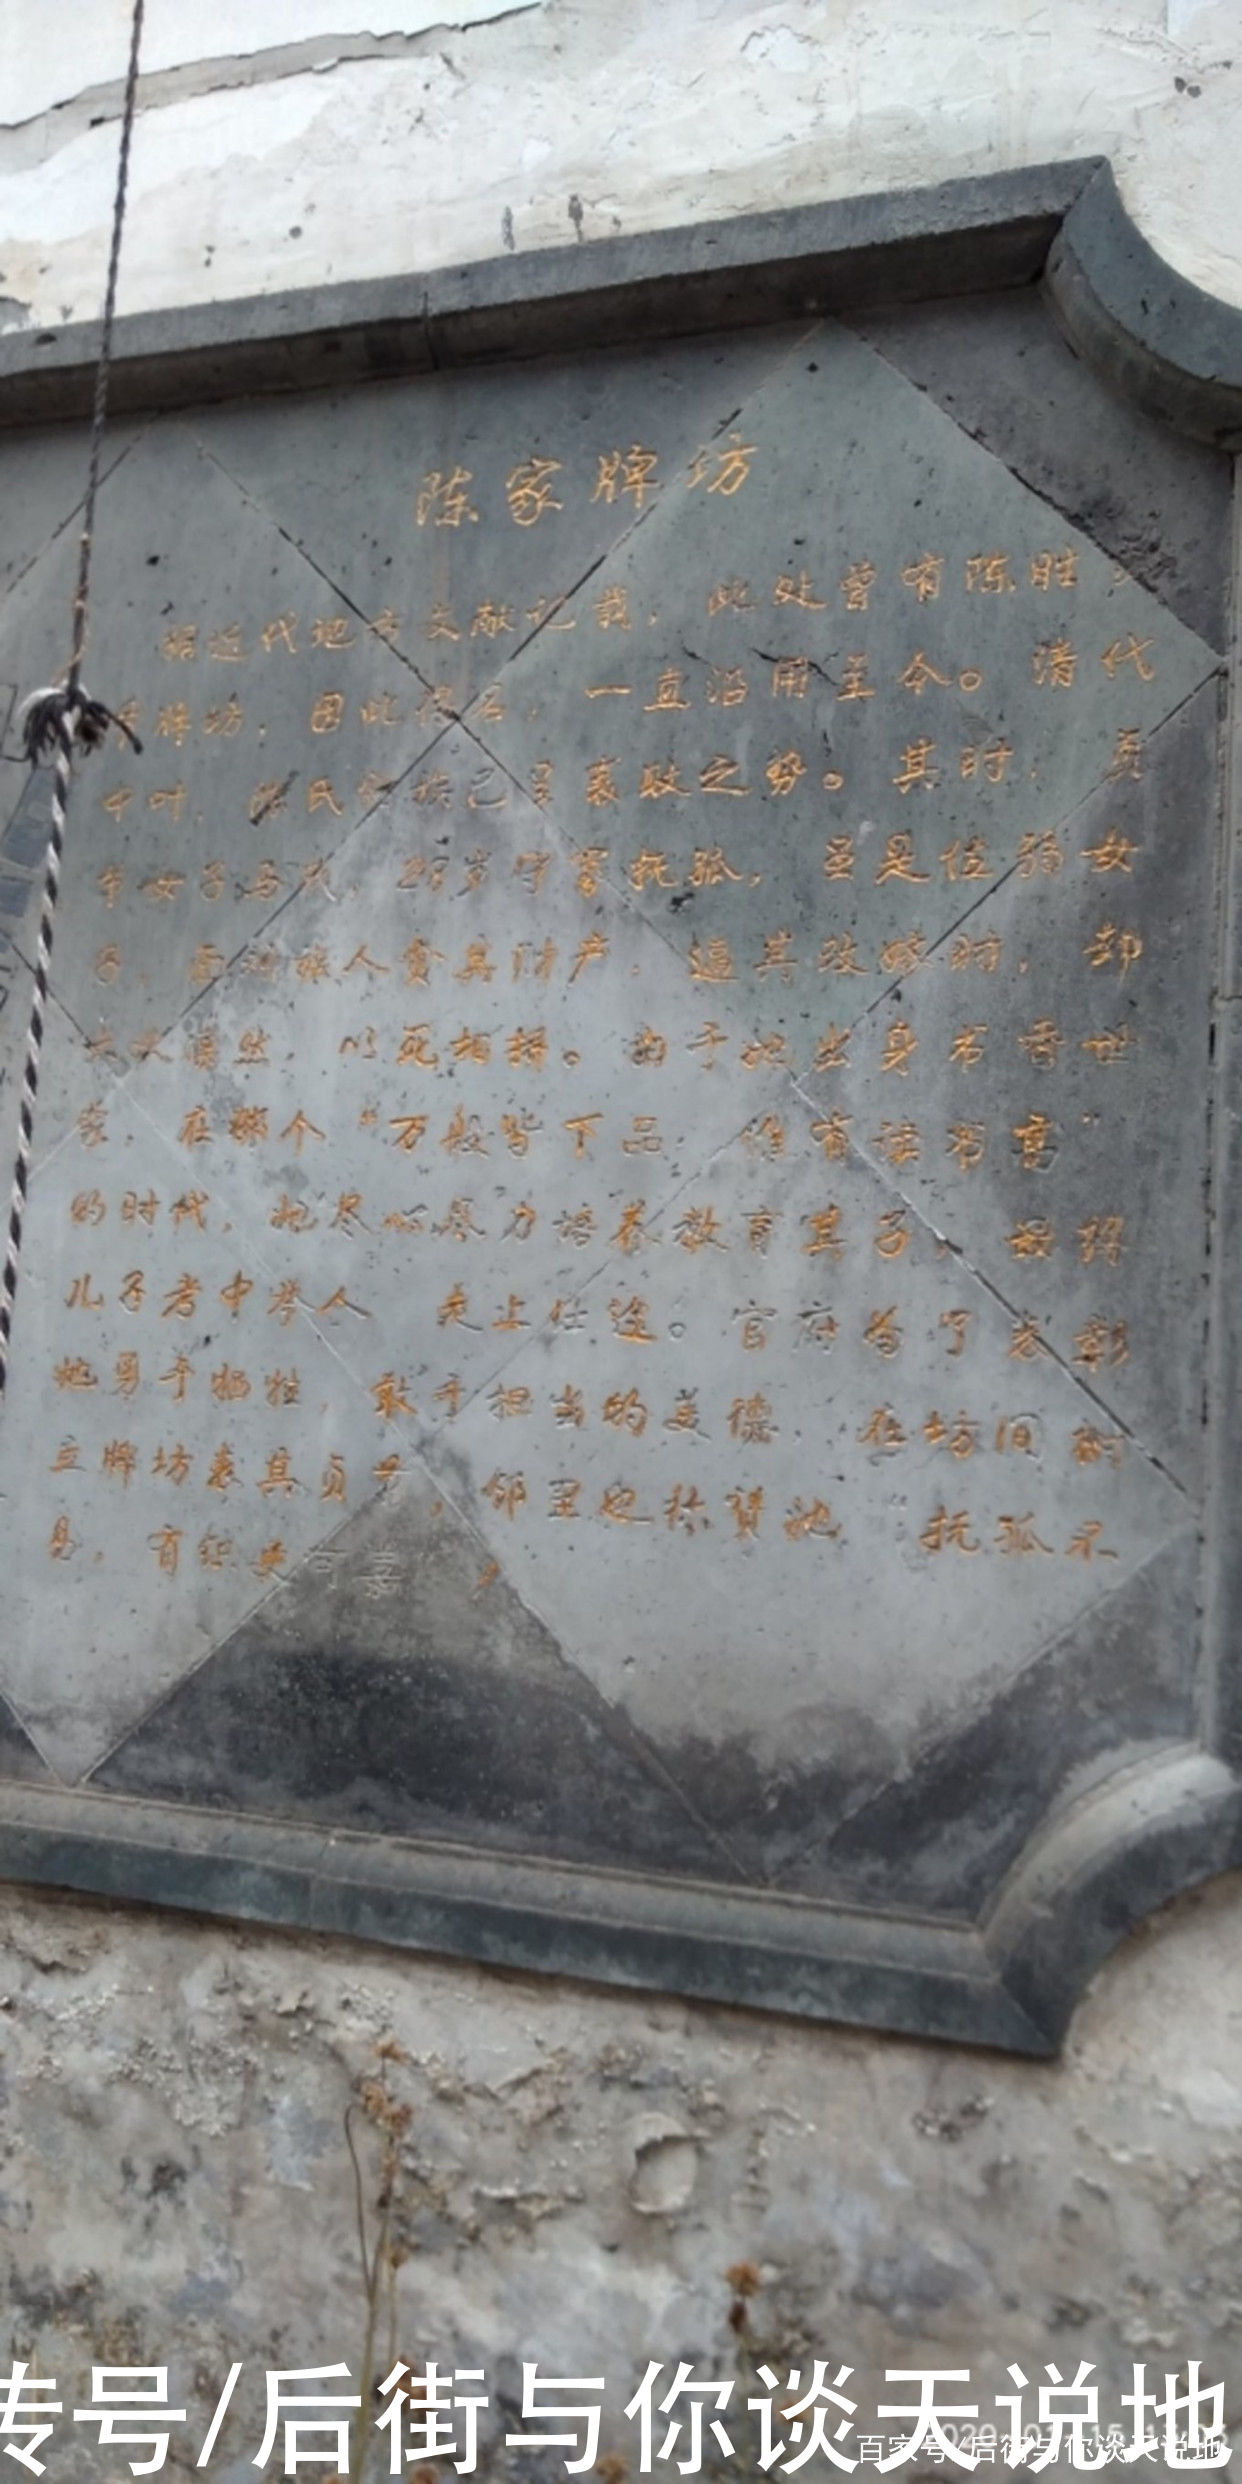 陈家牌坊
据近代地方文献记载，此处曾有陈胜
牌坊，因此得名，一直沿用至今。清代
中叶，陈氏家族已呈衰败之势。其时，贞
节女子马氏，28岁守寡抚孤，虽是位弱女
子，面对族人贪其财产，逼其改嫁时，却
大义凛然，以死相拼。由于她出身书香世
家，在那个“万般皆下品，惟有读书高”
的时代，她尽心尽力培养教育其子，最终
儿子考中举人 走上仕途。官府为了表彰
她勇于牺牲，敢于担当的美德，在坊间树
立牌坊表其贞节，邻里也称赞她“抚孤不
易，育织更可嘉”，
转号/后街与你谈天说地
百家号/后街与你谈天说地